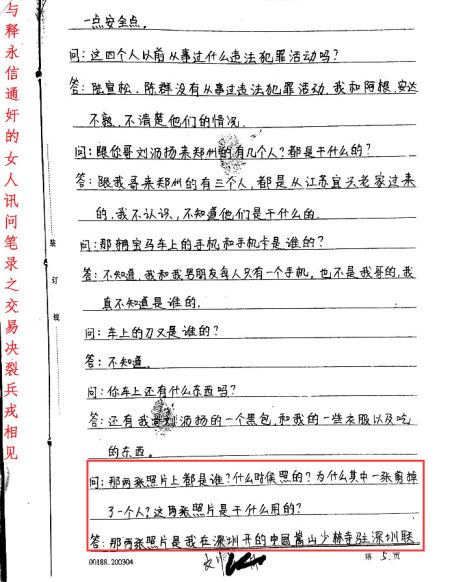 与释永信通奸的女人讯问笔录之交易决裂兵戎相见
装订线
一点安全点。
问:这四个人以前从事过什么违法犯罪活动吗?
答:陈宣松、陈群没有从事过违法犯罪活动,我和阿根、安达
不熟,不清楚他们的情况。
问:跟你哥刘沥扬来郑州的有几个人?都是干什么的?
答:跟我哥来郑州的有三个人,都是从江苏宜兴老家过来
的,我不认识,不知道他们是干什么的。
问:那辆宝马车上的手机和手机卡是谁的?
答:不知道,我和我男朋友每人只有一个手机,也不是我哥的,我
真不知道是谁的。
问:车上的刀又是谁的?
答:不知道。
问:你车上还有什么东西吗?
答:还有我哥刘沥扬的一个黑包,和我的一些衣服以及吃
的东西。
问:那两张照片上都是谁?什么时侯照的?为什么其中一张剪掉
了一个人?这两张照片是干什么用的?
答:那两张照片是我在深圳开的中國嵩山少林寺驻深圳联
00188.200304
第5页